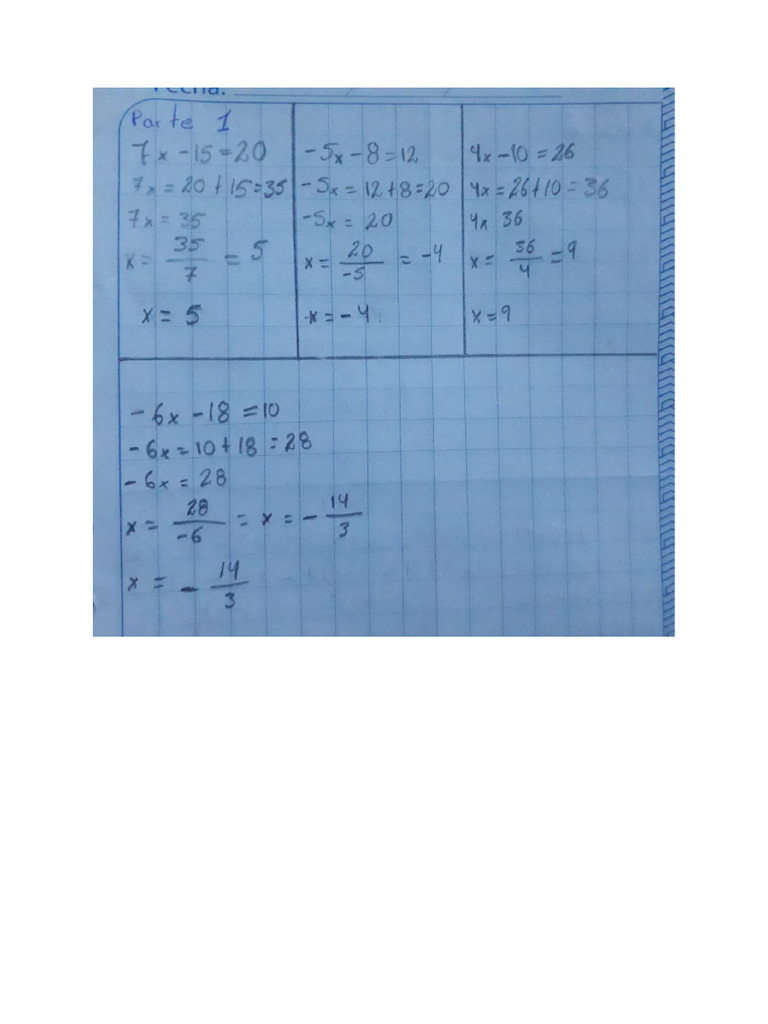 Fecha:
Parte 1
7x - 15 = 20
7x = 20 + 15 = 35
7x = 35
x = 35/7 = 5
x = 5
-5x - 8 = 12
-5x = 12 + 8 = 20
-5x = 20
x = 20/-5 = -4
x = -4
4x - 10 = 26
4x = 26 + 10 = 36
4x 36
x = 36/4 = 9
x = 9
-6x - 18 = 10
-6x = 10 + 18 = 28
-6x = 28
x = 28/-6 = x = -14/3
x = -14/3